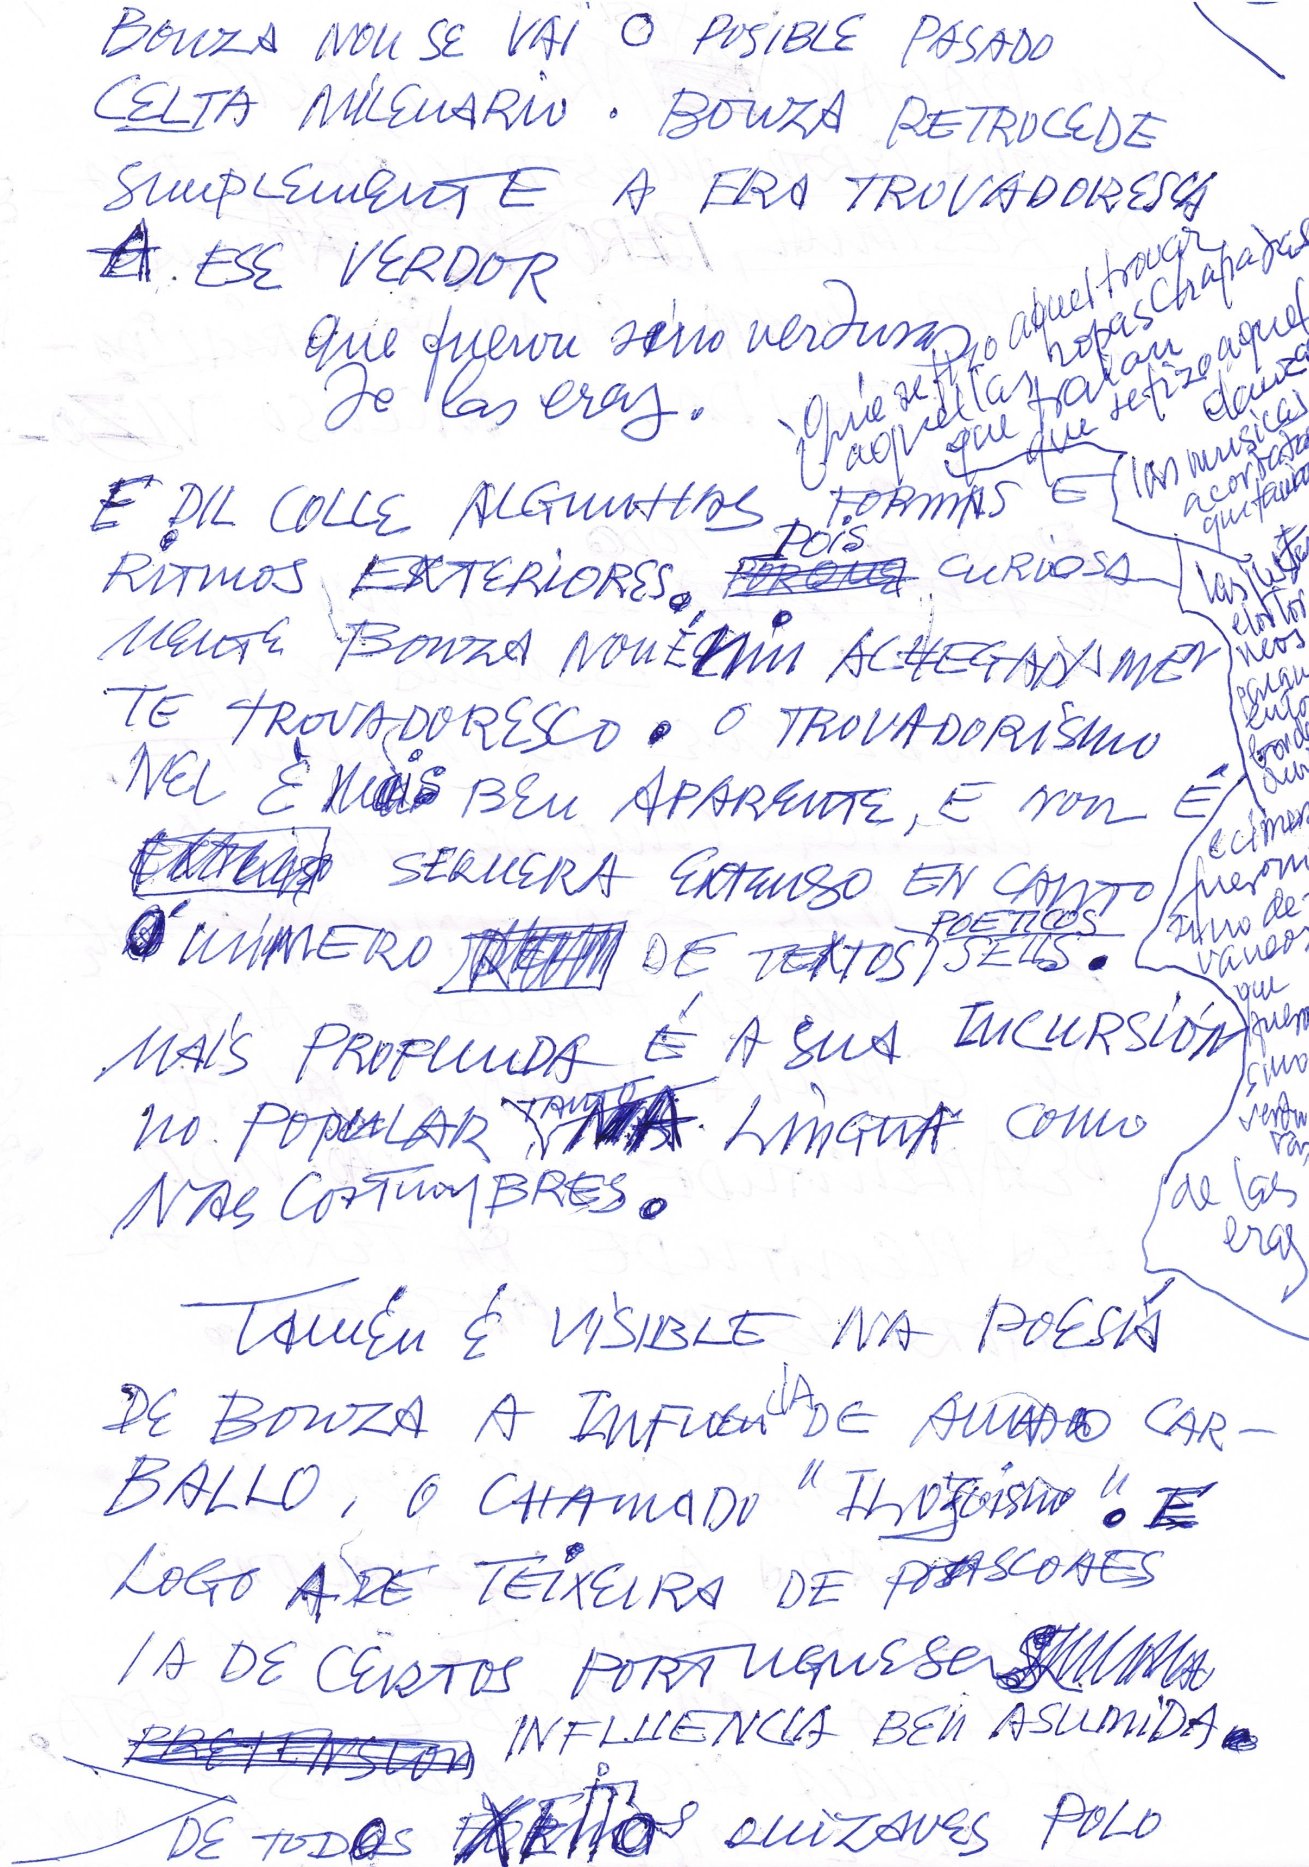 BOUZA NON SE VAI O POSIBLE PASADO
CELTA MILENARIO. BOUZA RETROCEDE
SIMPLEMENTE A ERA TROVADORESCA
A ESE VERDOR
que fueron sino verduras
de las eras.
E DIL COLLE ALGUNHAS FORMAS E
POIS
RITMOS EXTERIORES, PORQUE CURIOSA
MENTE BOUZA NON É NIN ACHEGADAMEN
TE TROVADORESCO. O TROVADORISMO
NEL É MAIS BEN APARENTE, E NON É
SEQUERA EXTENSO EN CANTO
POETICOS
Ó NÚMERO DE TEXTOS SEUS.
MAIS PROFUNDA É A SUA INCURSIÓN
TANTO
NO POPULAR, NA LINGUA COMO
NAS COSTUMBRES.
TAMÉN É VISIBLE NA POESÍA
DE BOUZA A INFLUENCIA DE AMADO CAR-
BALLO, O CHAMADO "ILOZOISMO". E
LOGO A DE TEIXEIRA DE PASCOAES
/A DE CERTOS PORTUGUESES
PRETENSION INFLUENCIA BEN ASUMIDA.
DE TODOS XEITOS QUIZAVES POLO
¿Qué se fizo aquel trovar
aquellas ropas chapadas
que traian
que se fizo aquel
danzar
las musicas
acordadas
que tañian
las justas
e los tor
neos
param
ento
borda
dur
e cimera
fueron
sino de-
vaneos
que
fuero
sino
verdu
ras
de las
eras